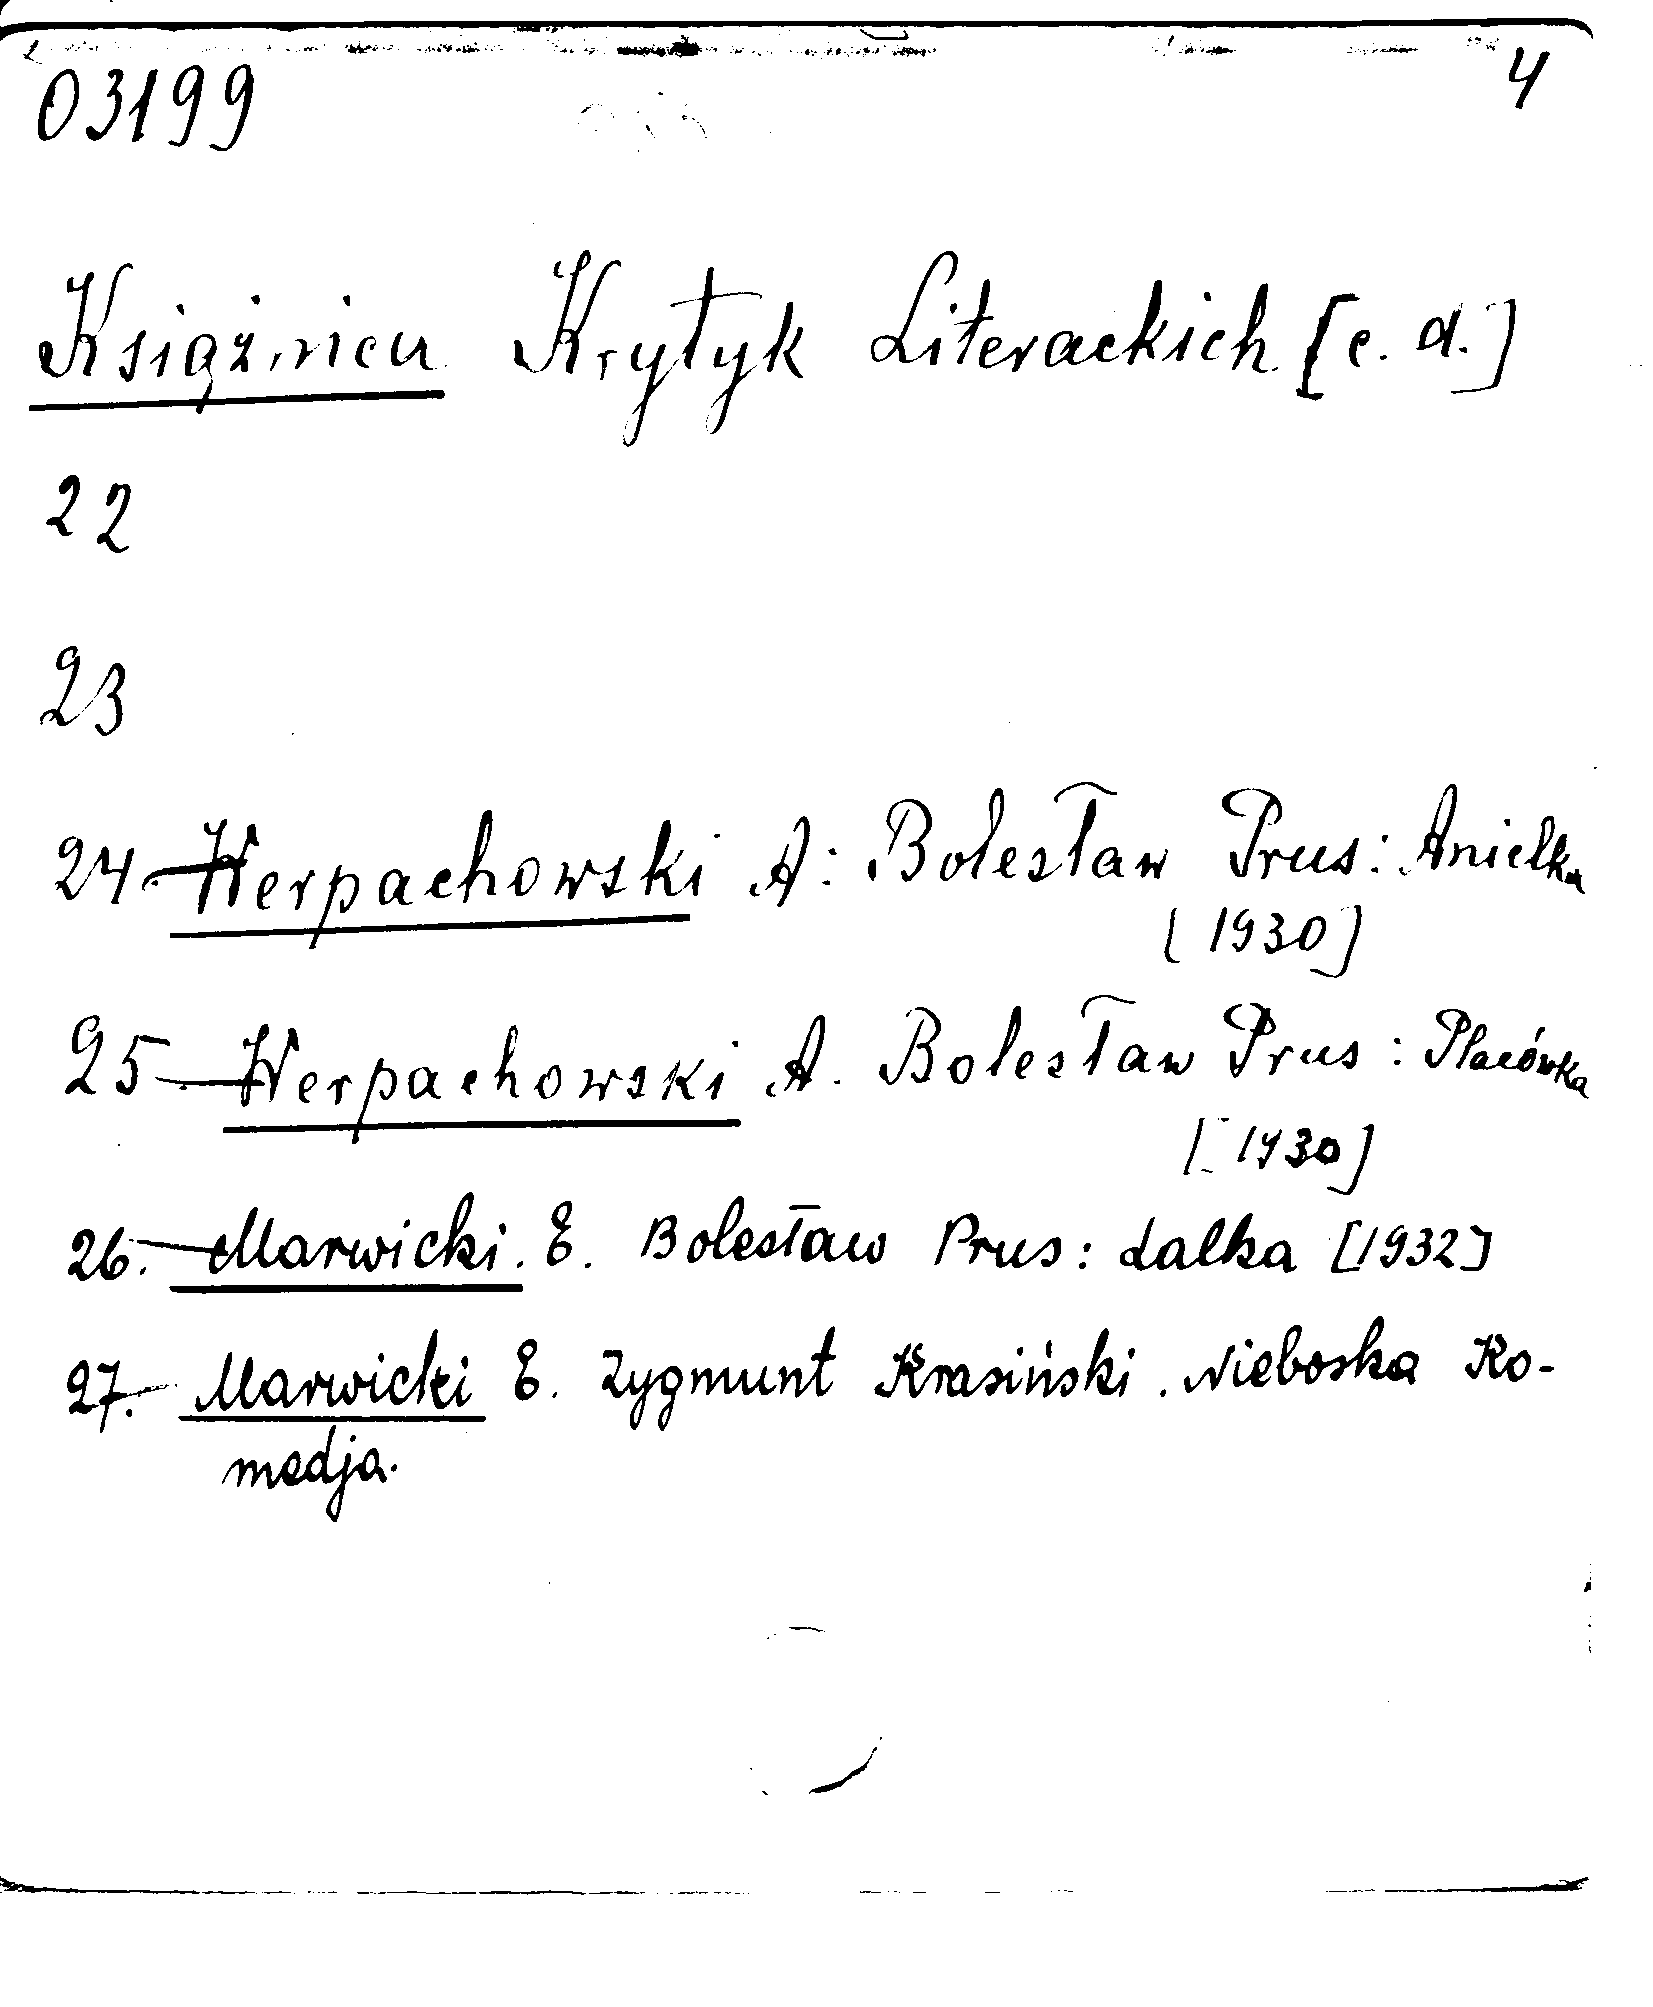 03199 4
Książnica Krytyk Literackich [c. d.]
22
23
24. Werpachowski A: Bolesław Prus: Anielka
[1930]
25. Werpachowski A. Bolesław Prus: Placówka
[1930]
26. Marwicki. E. Bolesław Prus: Lalka [1932]
27. Marwicki E. Zygmunt Krasiński. Nieboska Ko-
medja.